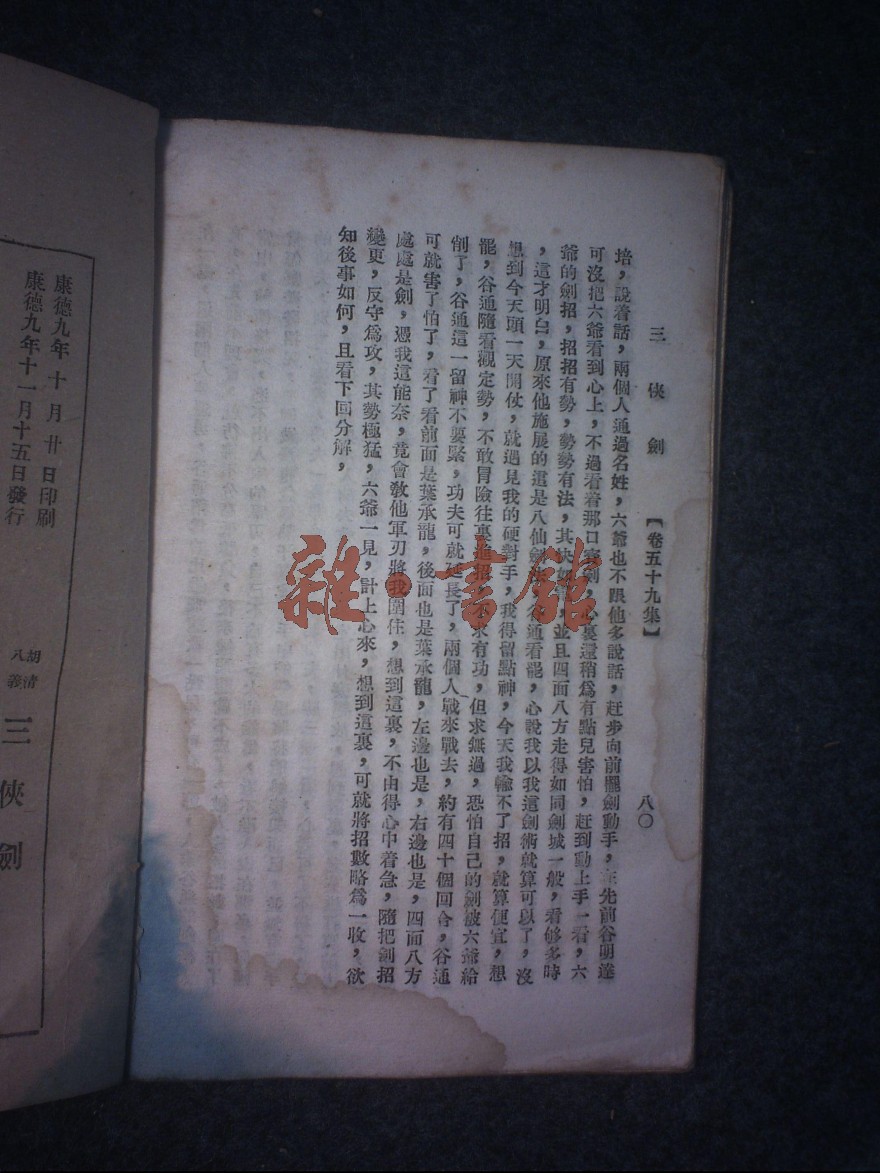 三俠劍　【卷五十九集】　八〇
培，說着話，兩個人通過名姓，六爺也不跟他多說話，赶步向前擺劍動手，在先前谷明遂
可沒把六爺看到心上，不過看着那口寶劍，心裏還稍爲有點兒害怕，赶到動上手一看，六
爺的劍招，招招有勢，勢勢有法，其快如，並且四面八方走得如同劍城一般，看够多時
，這才明白，原來他施展的這是八仙劍法，谷通看罷，心說我以我這劍術就算可以了，沒
想到今天頭一天開仗，就遇見我的硬對手，我得留點神，今天我輸不了招，就算便宜，想
罷，谷通隨看觀定勢，不敢冒險往裏進招，不求有功，但求無過，恐怕自己的劍被六爺給
削了，谷通這一留神不要緊，功夫可就延長了，兩個人戰來戰去，約有四十個回合，谷通
可就害了怕了，看了看前面是葉承龍，後面也是葉承龍，左邊也是，右邊也是，四面八方
處處是劍，憑我這能奈，竟會教他軍刃將我圍住，想到這裏，不由得心中着急，隨把劍招
變更，反守爲攻，其勢極猛，六爺一見，計上心來，想到這裏，可就將招數略爲一收，欲
知後事如何，且看下回分解，
康德九年十月廿日印刷
康德九年十一月十五日發行
胡清
八義
三俠劍
雜·書館